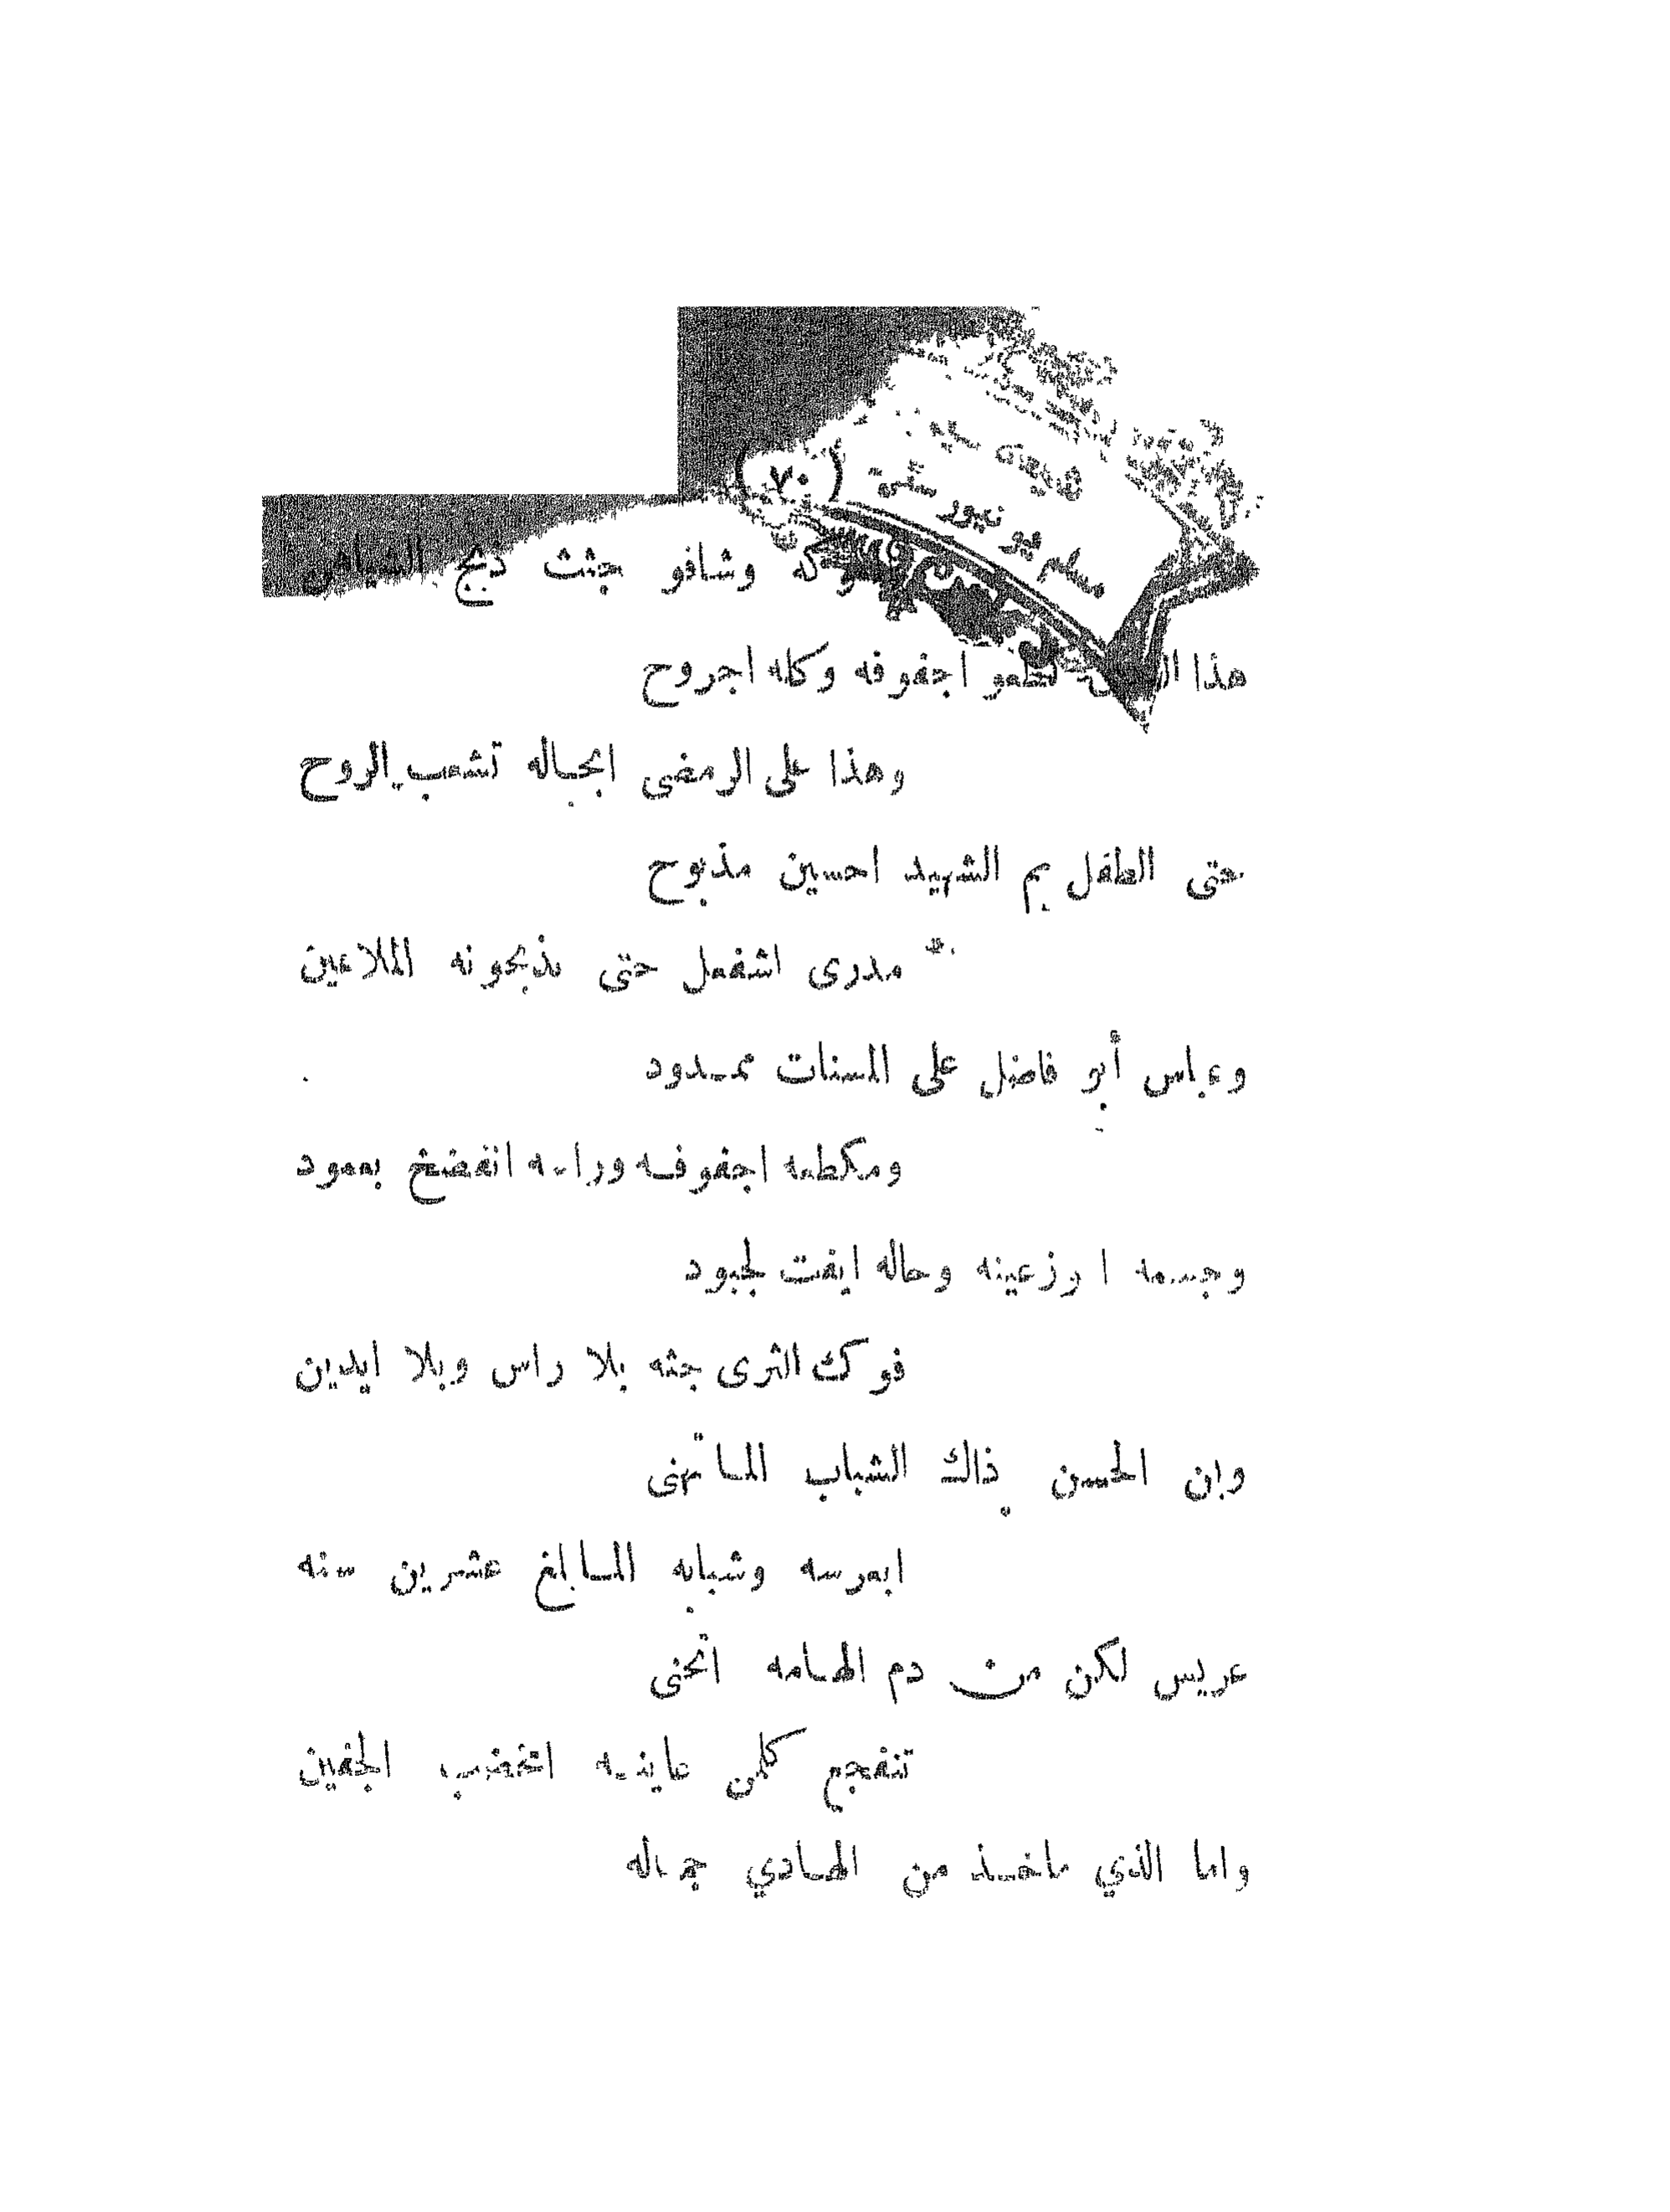 (٧٠)
وشافو جثث ذبج الشياهين
هذا اجفوفه وكله اجروح
وهذا على الرمضى ابحاله تشعب الروح
حتى الطفل يم الشهيد احسين مذبوح
مدرى اشفعل حتى يذبحونه الملاعين
وعباس أبو فاضل على المسنات ممدود
ومكطعه اجفوفه وراسه انفضخ بعمود
وجسمه اموزعينه وحاله ايفت لجبود
فوك الثرى جثه بلا راس وبلا ايدين
وابن الحسن ذاك الشباب الماتهنى
ابعرسه وشبابه المابلغ عشرين سنه
عريس لكن من دم الهامه اتحنى
تنفجع كلمن عاينه اتخضب الجفين
واما الذي ماخذ من الهادي جماله